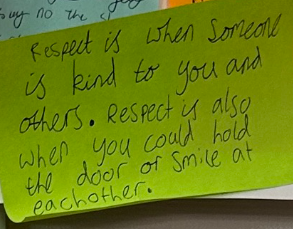 buy no the
Respect is when someone
is kind to you and
others. Respect is also
when you could hold
the door or smile at
eachother.